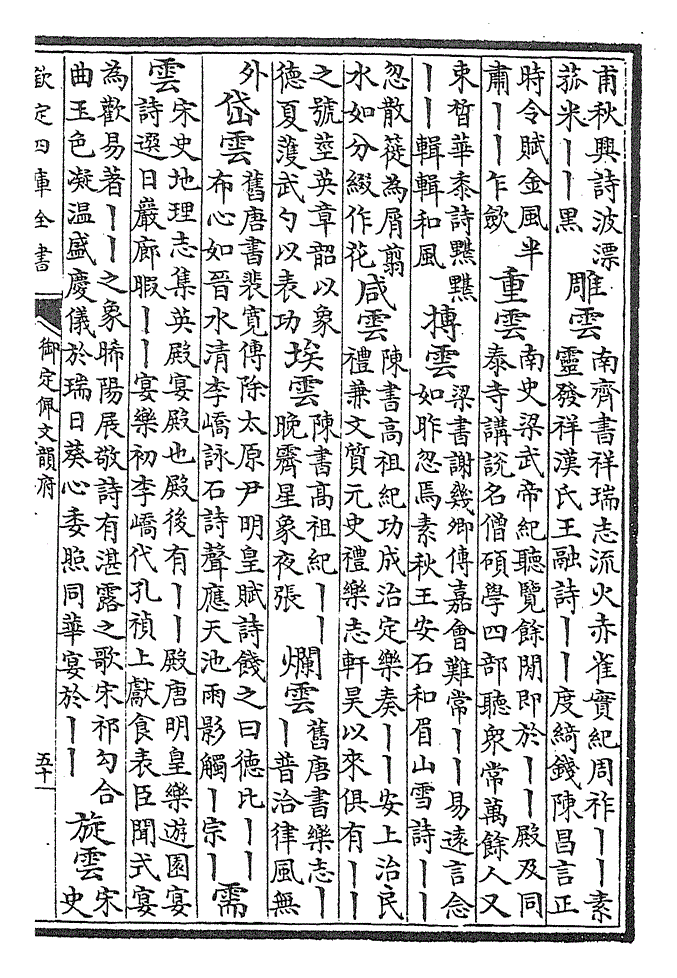 甫秋興詩波漂
菰米丨丨黑
雕雲
南齊書祥瑞志流火赤雀實紀周祚丨丨素
靈發祥漢氏王融詩丨丨度綺錢陳昌言正
時令賦金風半
肅丨丨乍歛
重雲
南史梁武帝紀聽覽餘閒即於丨丨殿及同
泰寺講說名僧碩學四部聽衆常萬餘人又
束皙華黍詩黮黮
丨丨輯輯和風
摶雲
梁書謝幾卿傳嘉會難常丨丨易遠言念
如昨忽焉素秋王安石和眉山雪詩丨丨
忽散蓰為屑翦
水如分綴作花
咸雲
陳書高祖紀功成治定樂奏丨丨安上治民
禮兼文質元史禮樂志軒昊以來俱有丨丨
之號莖英章韶以象
德夏頀武勺以表功
埃雲
陳書高祖紀丨丨
晚霽星象夜張
爛雲
舊唐書樂志丨
丨普洽律風無
外
岱雲
舊唐書裴寛傳除太原尹明皇賦詩餞之曰德比丨丨
布心如晉水清李嶠詠石詩聲應天池雨影觸丨宗丨
需雲
宋史地理志集英殿宴殿也殿後有丨丨殿唐明皇樂遊園宴
詩選日嚴廊暇丨丨宴樂初李嶠代孔禎上獻食表臣聞式宴
為歡易著丨丨之象晞陽展敬詩有湛露之歌宋祁勾合
曲玉色凝温盛慶儀於瑞日葵心委照同華宴於丨丨
旋雲
宋
史
欽定四庫全書
御定佩文韻府
五十